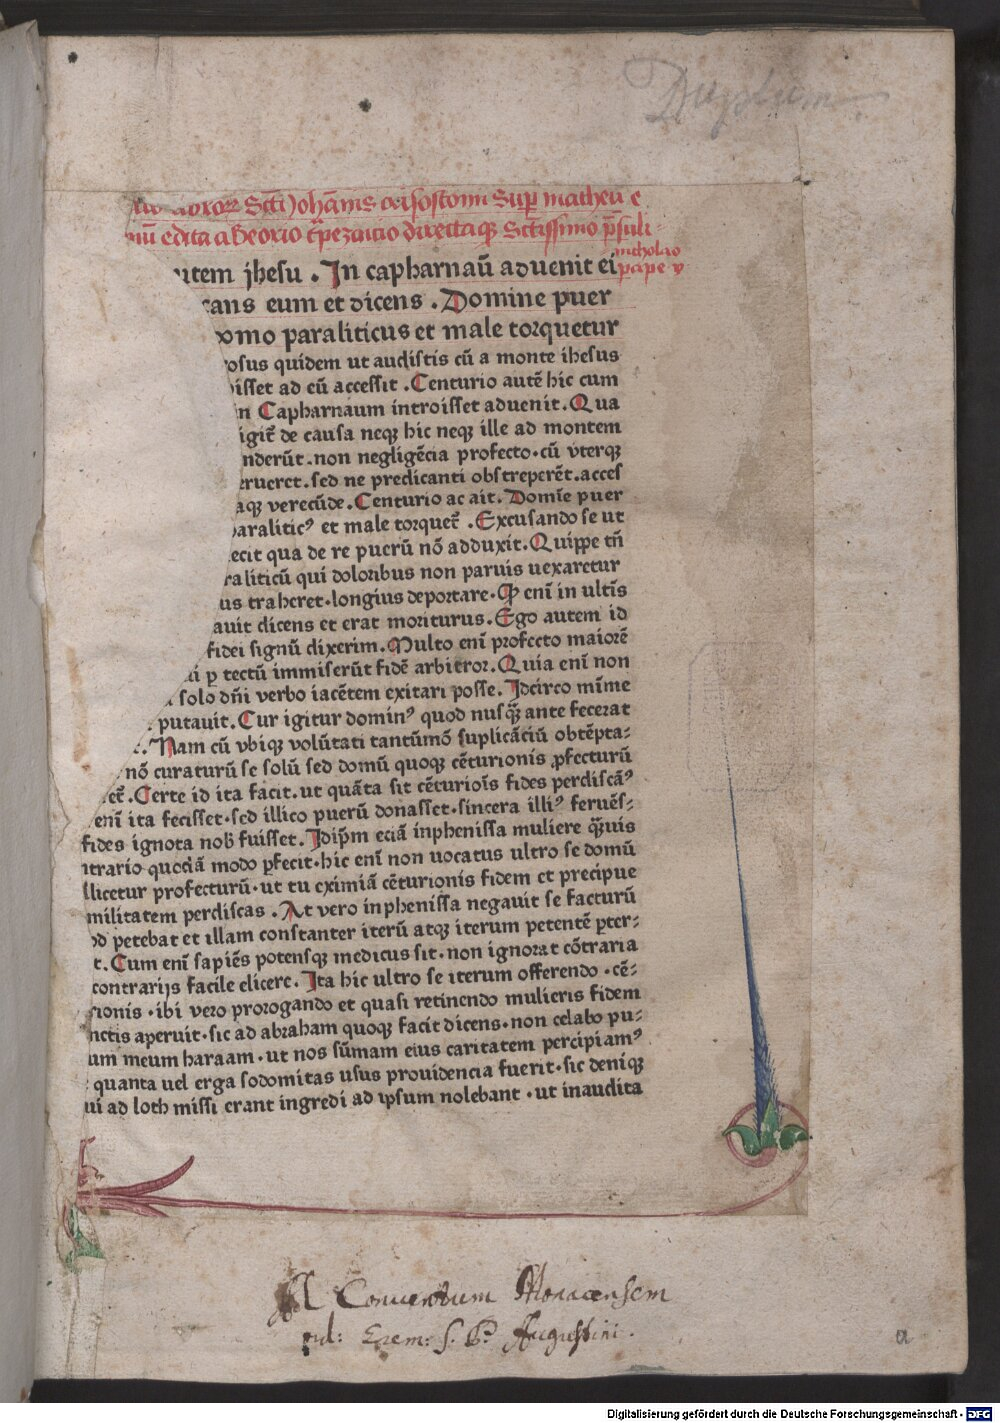 Duplum
Scti Johānis crisostomi Sup matheu e
niū edita a georio trapezuntio directaq Sctissimo psuli-
nicholao
pape v
autem jhesu . In capharnaū aduenit ei
cans eum et dicens . Domine puer
domo paraliticus et male torquetur
rosus quidem ut audistis cū a monte ihesus
disset ad eū accessit . Centurio autē hic cum
in Capharnaum introisset aduenit . Qua
igit̄ de causa neqꝫ hic neqꝫ ille ad montem
nderūt . non negligēcia profecto . cū vterqꝫ
erueret . sed ne predicanti obstreperēt . acces
aqꝫ verecūde . Centurio ac ait . Domīe puer
paraliticꝰ et male torquet̄ . Excusando se ut
fecit qua de re puerū nō adduxit . Quippe tn̄
raliticū qui doloribus non paruis uexaretur
us traheret . longius deportare . Qꝫ enī in ultīs
auit dicens et erat moriturus . Ego autem id
fidei signū dixerim . Multo enī profecto maiorē
ui ꝑ tectū immiserūt fidē arbitror . Quia enī non
solo dn̄i verbo iacētem exitari posse . Idcirco mīme
putauit . Cur igitur dominꝰ quod nusqꝫ̄ ante fecerat
. Nam cū vbiqꝫ volūtati tantūmō suplicāciū obtēpta-
nō curaturū se solū sed domū quoqꝫ cēturionis ꝓfecturū
cet̄ . Certe id ita facit . ut quāta sit cēturiōis fides perdiscāꝰ
enī ita fecisset . sed illico puerū donasset . sincera illiꝰ feruēs-
fides ignota nob̄ fuisset . Idip̄m eciā inphenissa muliere qꝫ̄uis
ntrario quodā modo ꝑfecit . hic enī non uocatus ultro se domū
llicetur profecturū . ut tu eximiā cēturionis fidem et precipue
militatem perdiscas . At vero inphenissa negauit se facturū
od petebat et illam constanter iterū atqꝫ iterum petentē ꝑter-
t . Cum enī sapiēs potensqꝫ medicus sit . non ignorat cōtraria
contrarijs facile elicere . Ita hic ultro se iterum offerendo . cē-
rionis . ibi vero prorogando et quasi retinendo mulieris fidem
nctis aperuit . sic ad abraham quoqꝫ facit dicens . non celabo pu-
um meum haraam . ut nos sūmam eius caritatem percipiamꝰ
quanta uel erga sodomitas usus prouidencia fuerit . sic deniqꝫ
ui ad loth missi erant ingredi ad ipsum nolebant . ut inaudita
Ad Conuentum Monacensem
ord: Erem: S. P. Augustini .
a
Digitalisierung gefördert durch die Deutsche Forschungsgemeinschaft - DFG